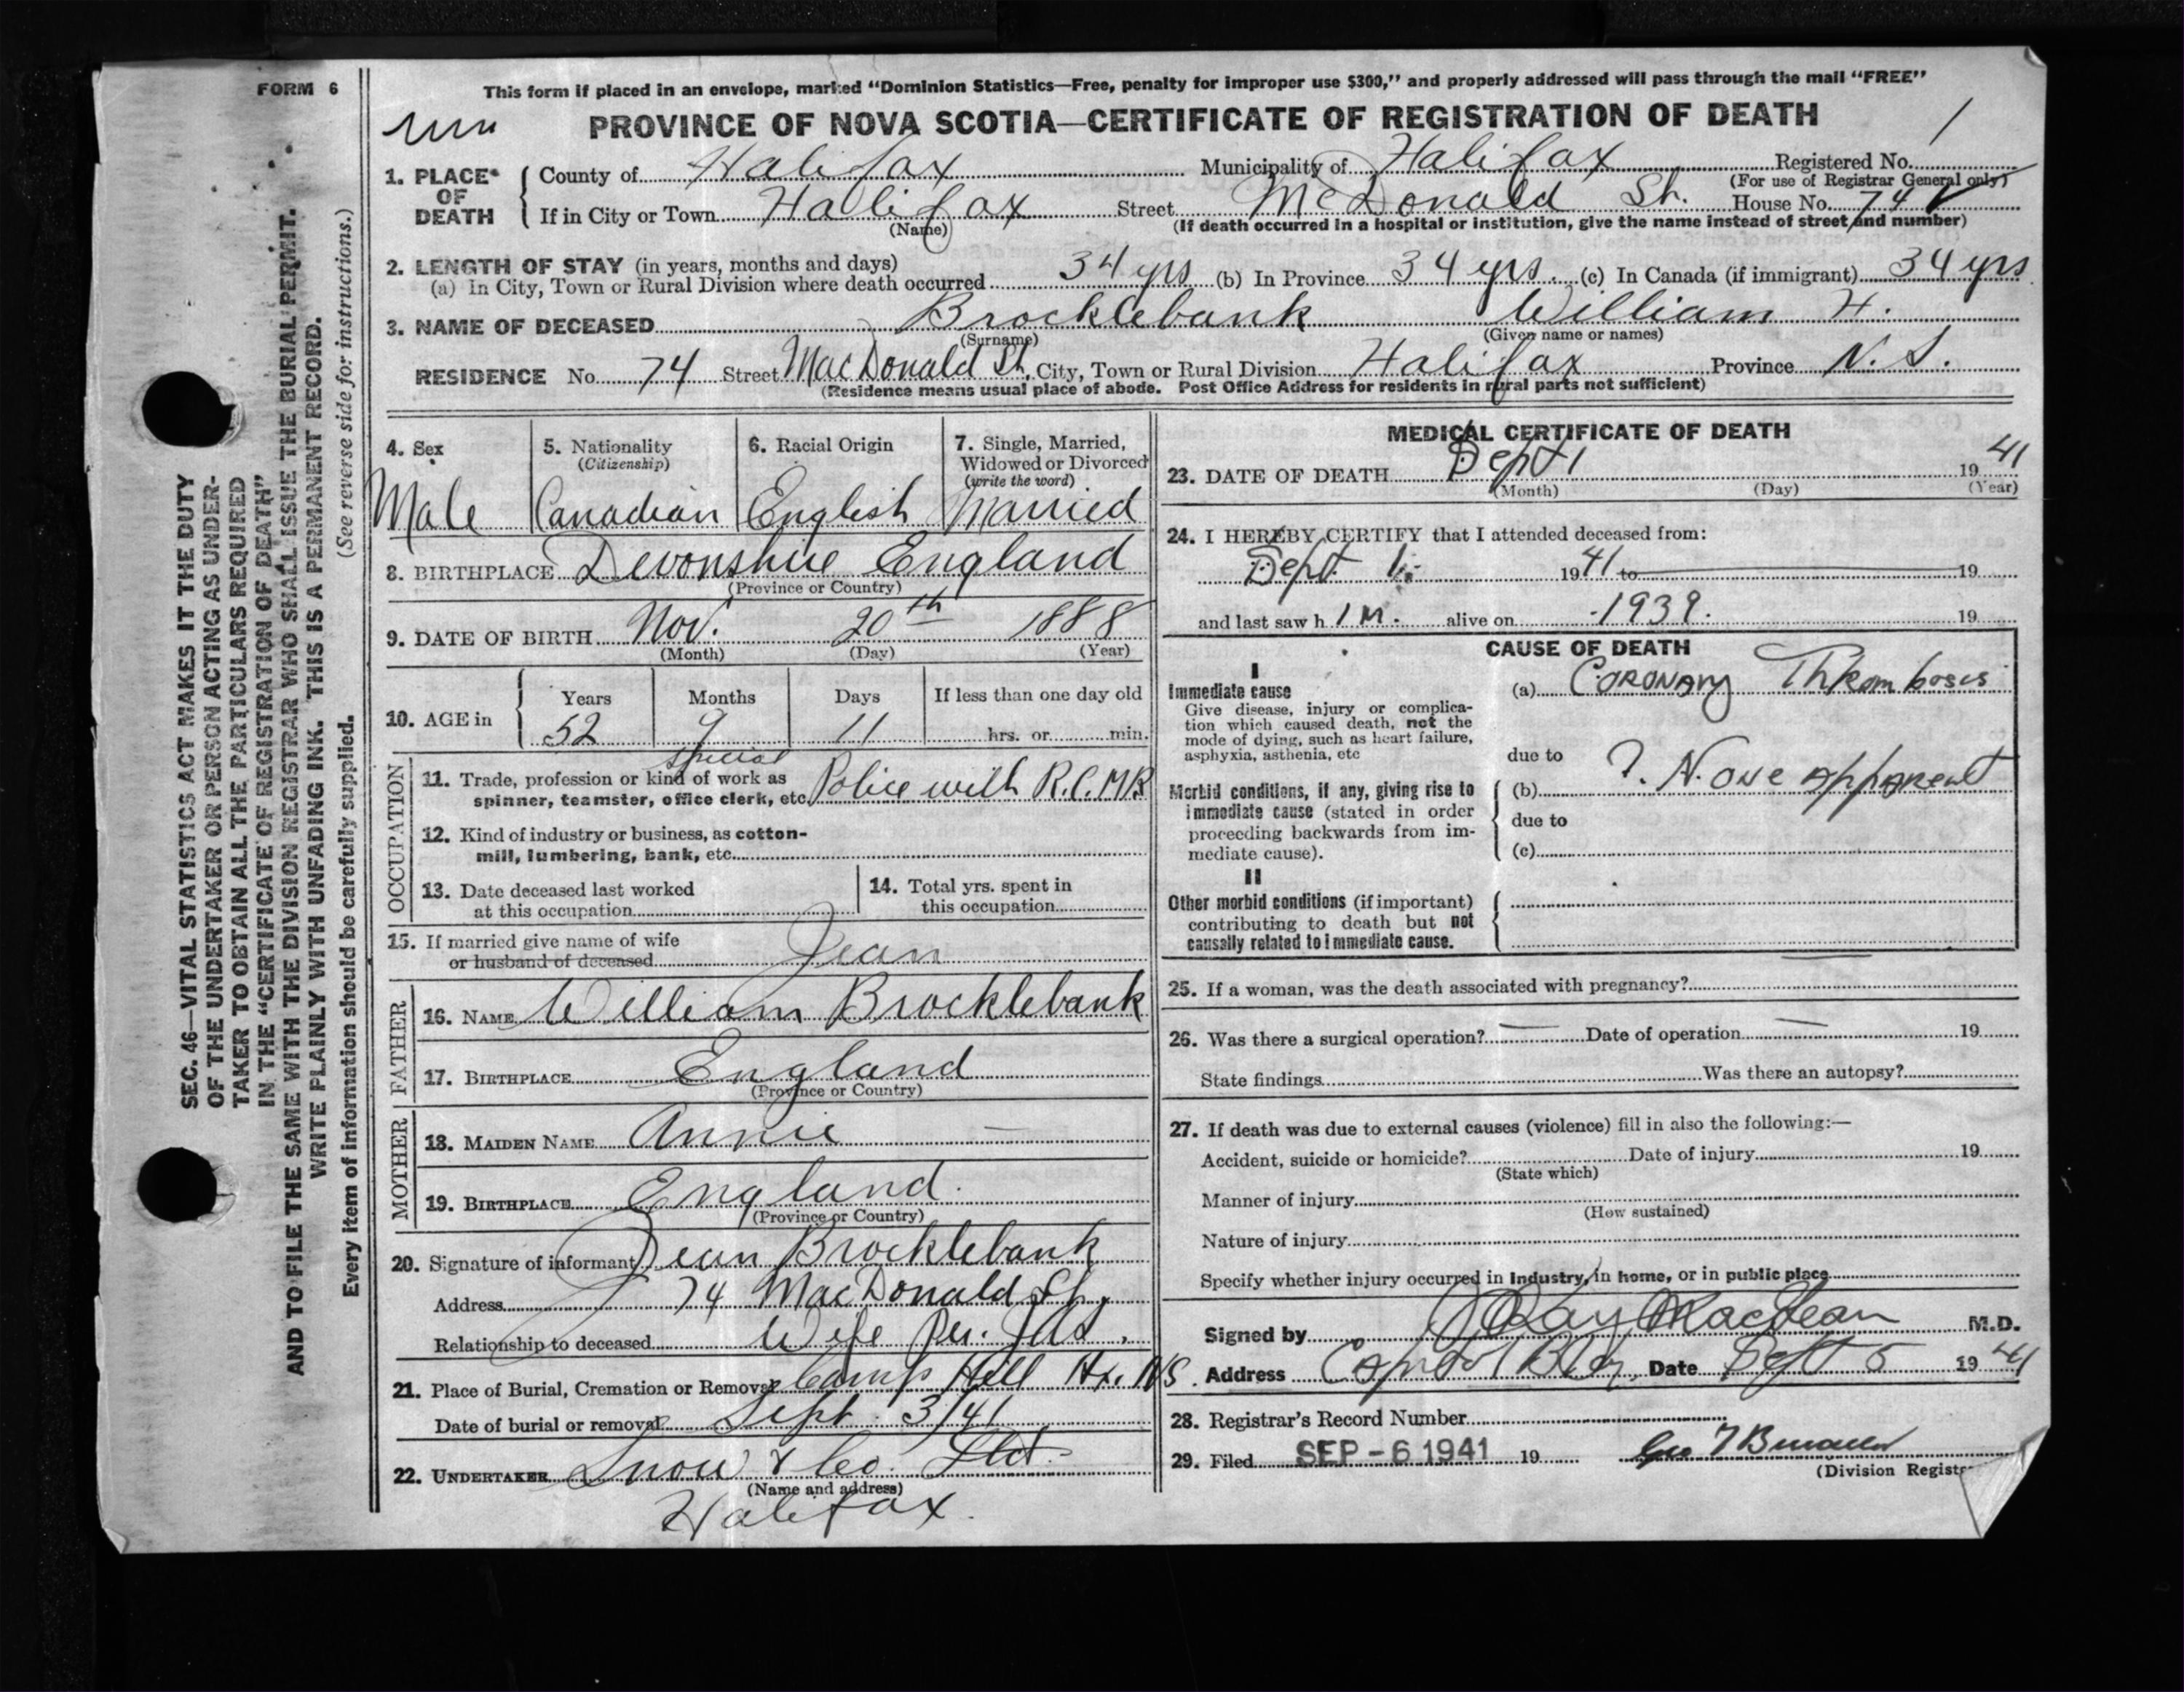 FORM 6
This form if placed in an envelope, marked "Dominion Statistics—Free, penalty for improper use $300," and properly addressed will pass through the mail "FREE"
PROVINCE OF NOVA SCOTIA—CERTIFICATE OF REGISTRATION OF DEATH
1. PLACE OF DEATH
County of Halifax Municipality of Halifax Registered No.
(For use of Registrar General only)
If in City or Town Halifax Street McDonald St. House No. 74
(Name) (If death occurred in a hospital or institution, give the name instead of street and number)
2. LENGTH OF STAY (in years, months and days)
(a) In City, Town or Rural Division where death occurred 34 yrs (b) In Province 34 yrs. (c) In Canada (if immigrant) 34 yrs
3. NAME OF DECEASED Brocklebank William H.
(Surname) (Given name or names)
RESIDENCE No. 74 Street MacDonald St, City, Town or Rural Division Halifax Province N. S.
(Residence means usual place of abode. Post Office Address for residents in rural parts not sufficient)
4. Sex
Male
5. Nationality
(Citizenship)
Canadian
6. Racial Origin
English
7. Single, Married,
Widowed or Divorced
(write the word)
Married
8. BIRTHPLACE Devonshire England
(Province or Country)
9. DATE OF BIRTH Nov. 20th 1888
(Month) (Day) (Year)
10. AGE in
Years Months Days If less than one day old
52 9 11 hrs. or min.
OCCUPATION
special
11. Trade, profession or kind of work as
spinner, teamster, office clerk, etc. Police with R.C.M.P.
12. Kind of industry or business, as cotton-
mill, lumbering, bank, etc.
13. Date deceased last worked
at this occupation
14. Total yrs. spent in
this occupation
15. If married give name of wife
or husband of deceased Jean
FATHER
16. NAME William Brocklebank
17. BIRTHPLACE England
(Province or Country)
MOTHER
18. MAIDEN NAME Annie —
19. BIRTHPLACE England.
(Province or Country)
20. Signature of informant Jean Brocklebank
Address 74 MacDonald St.
Relationship to deceased Wife Per.
21. Place of Burial, Cremation or Removal Camp Hill Hx. NS.
Date of burial or removal Sept. 3/41
22. UNDERTAKER Snow & Co. Ltd.
(Name and address)
Halifax.
MEDICAL CERTIFICATE OF DEATH
23. DATE OF DEATH Sept 1 1941
(Month) (Day) (Year)
24. I HEREBY CERTIFY that I attended deceased from:
Sept 1. 1941 to 19
and last saw h im. alive on 1939. 19
CAUSE OF DEATH
I
Immediate cause
Give disease, injury or complica-
tion which caused death, not the
mode of dying, such as heart failure,
asphyxia, asthenia, etc
(a) Coronary Thrombosis
due to
Morbid conditions, if any, giving rise to
immediate cause (stated in order
proceeding backwards from im-
mediate cause).
(b) ?. None apparent
due to
(c)
II
Other morbid conditions (if important)
contributing to death but not
causally related to immediate cause.
25. If a woman, was the death associated with pregnancy? —
26. Was there a surgical operation? — Date of operation — 19
State findings Was there an autopsy?
27. If death was due to external causes (violence) fill in also the following:—
Accident, suicide or homicide? Date of injury 19
(State which)
Manner of injury
(How sustained)
Nature of injury
Specify whether injury occurred in industry, in home, or in public place
Signed by J Ray MacLean M.D.
Address Capitol Bldg. Date Sept 5 1941
28. Registrar's Record Number
29. Filed SEP - 6 1941 19
(Division Registr
SEC. 46—VITAL STATISTICS ACT MAKES IT THE DUTY
OF THE UNDERTAKER OR PERSON ACTING AS UNDER-
TAKER TO OBTAIN ALL THE PARTICULARS REQUIRED
IN THE "CERTIFICATE OF REGISTRATION OF DEATH"
AND TO FILE THE SAME WITH THE DIVISION REGISTRAR WHO SHALL ISSUE THE BURIAL PERMIT.
WRITE PLAINLY WITH UNFADING INK. THIS IS A PERMANENT RECORD.
Every item of information should be carefully supplied. (See reverse side for instructions.)